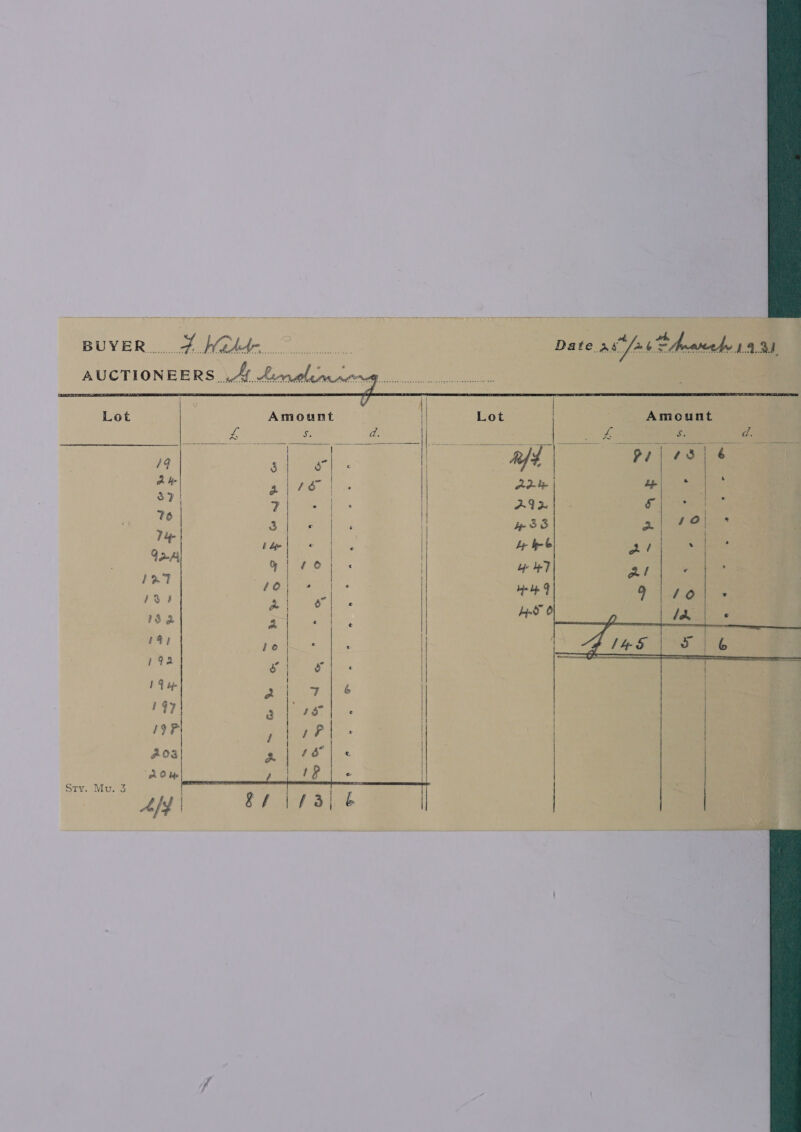 BUYER
Date 25th/26th March 1931
AUCTIONEERS
Lot Amount Lot Amount
£ s. d. £ s. d.
19 3 5 "
24 2 15 "
37 7 " "
70 3 " "
74 14 " "
92A 9 10 "
127 10 " "
131 2 5 "
132 2 " "
191 10 " "
192 5 5 "
194 2 7 6
197 3 15 "
198 1 18 "
203 2 15 "
204 1 18 "
Sty. Mu. 3
c/f 81 13 6
B/f 81 13 6
224 4 " "
292 5 " "
433 2 10 "
446 21 " "
447 21 " "
449 9 10 "
450 12 "
£ 145 5 6